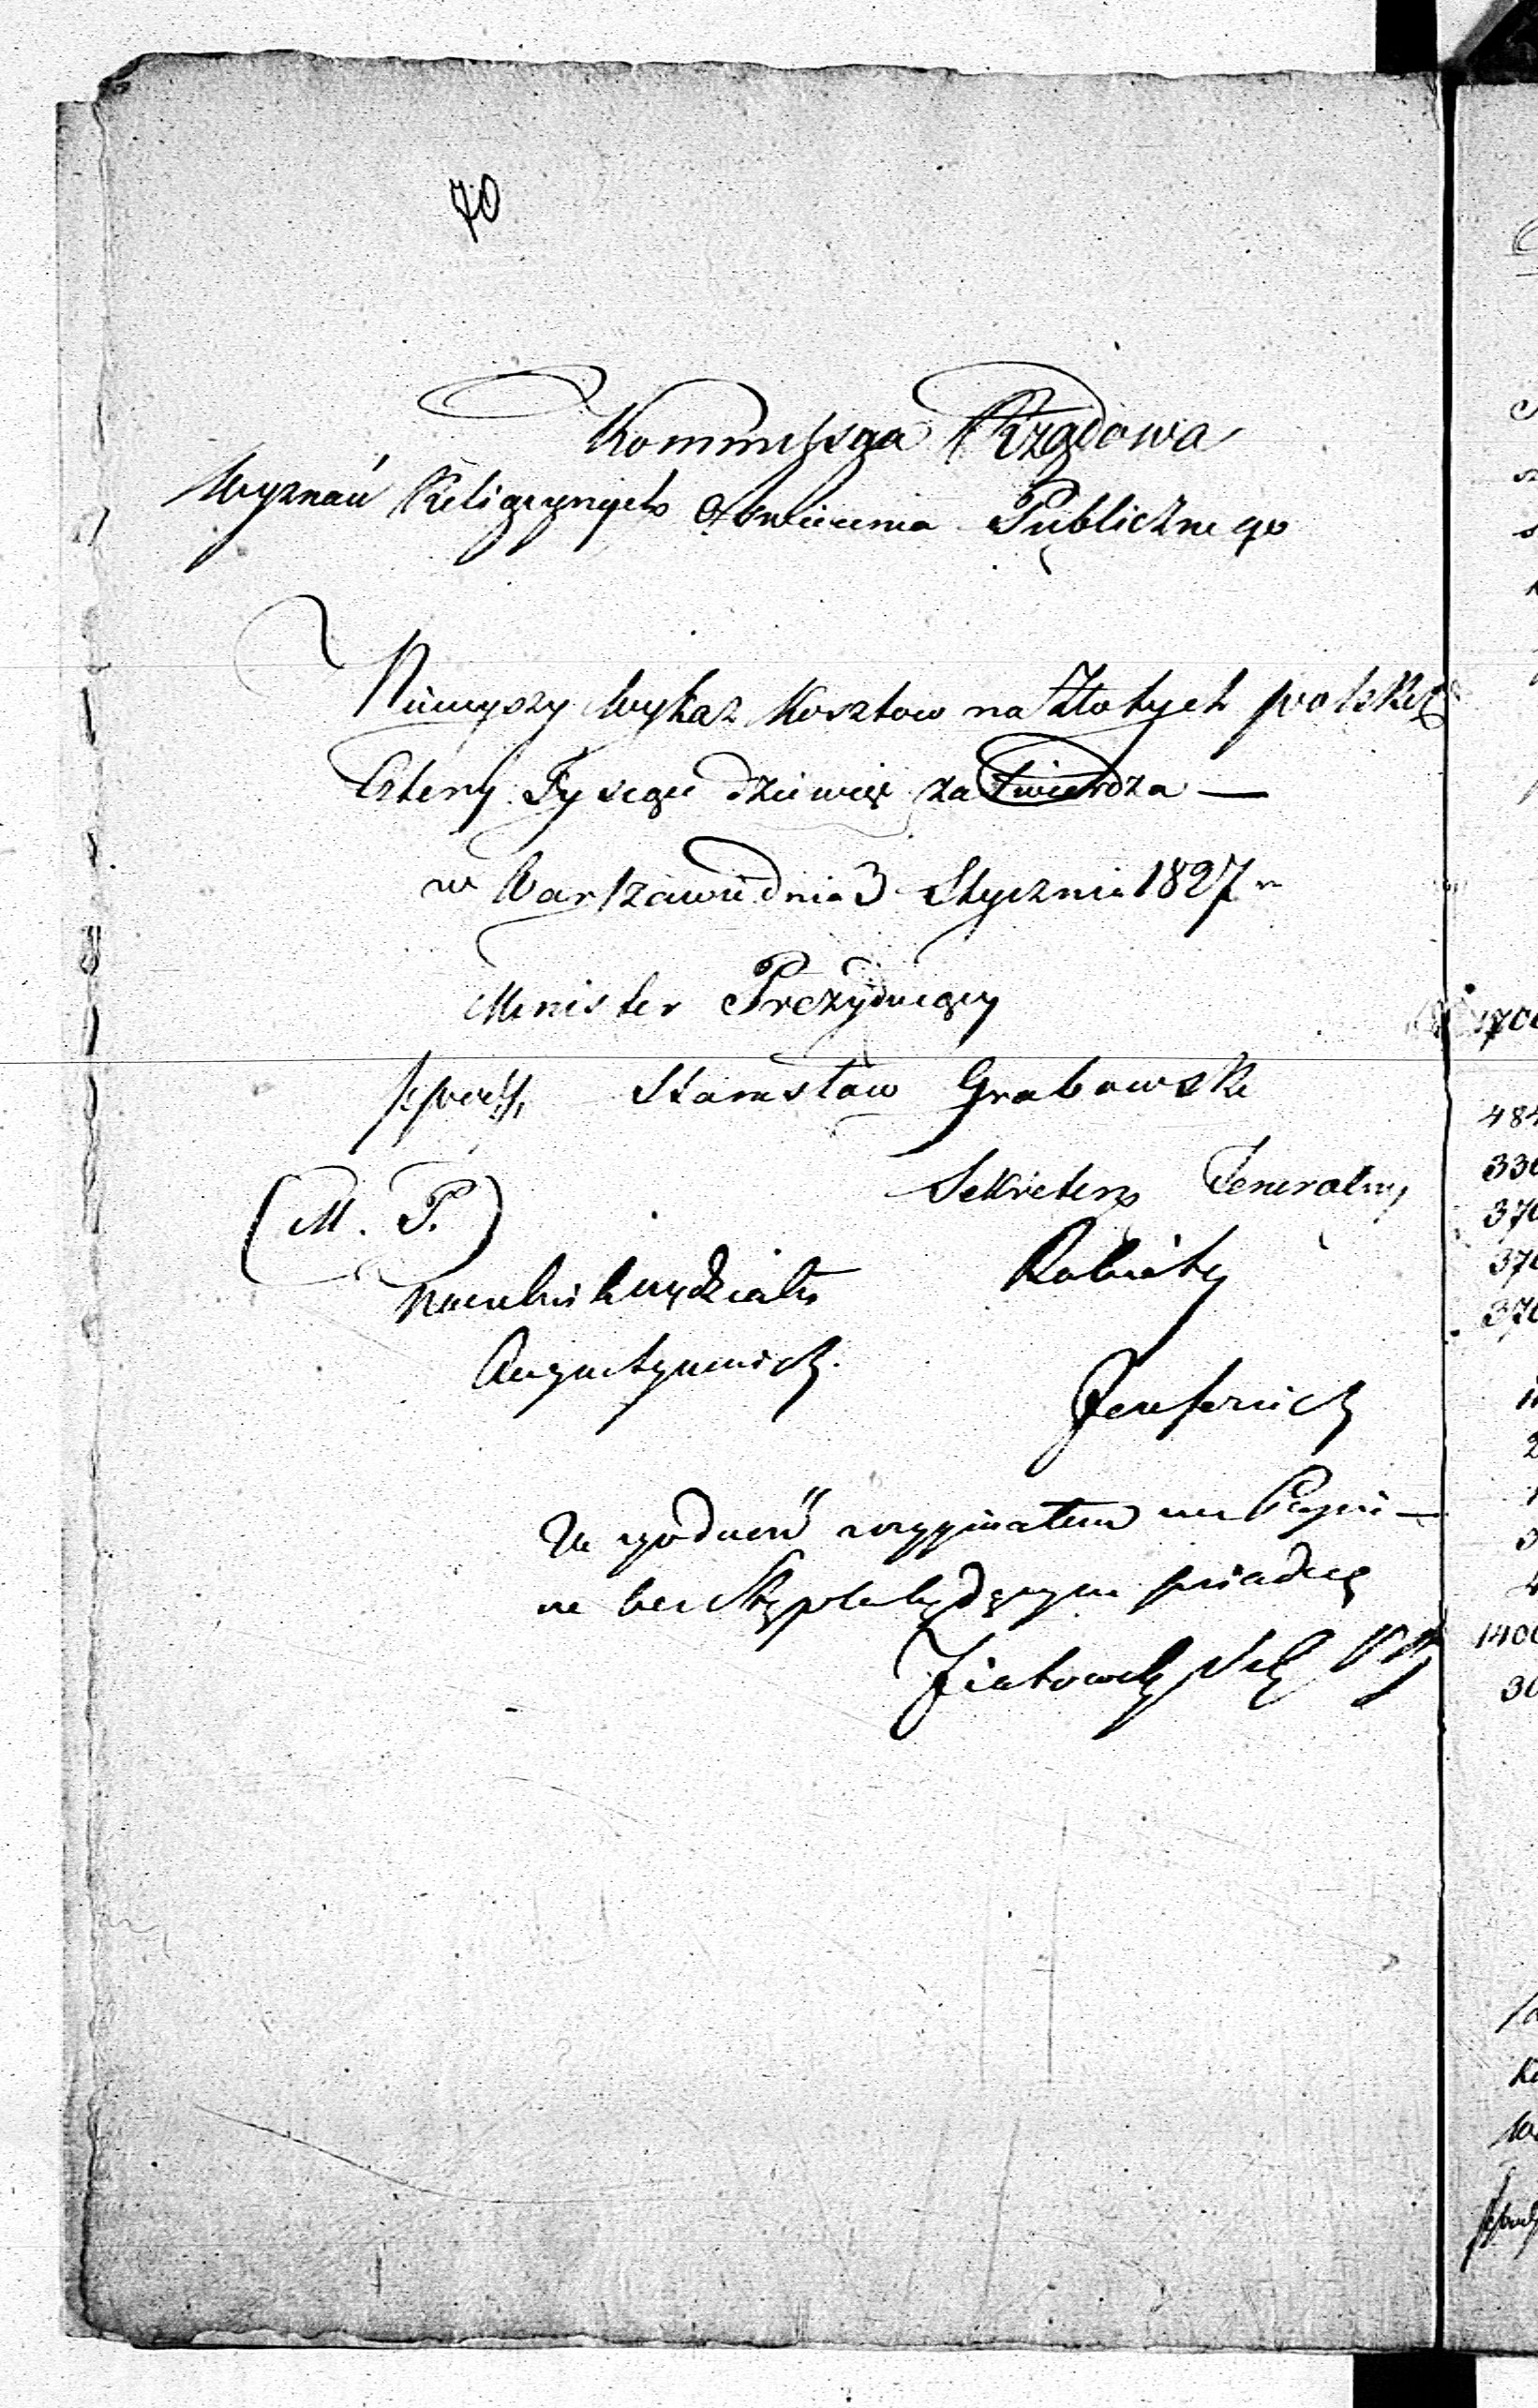 70
Kommissya Rządowa
Wyznań Religijnych Oświecenia Publicznego
Ninieyszy wykaz Kosztow na Złotych polskich
Cztery Tysiące dziewięć zatwierdza —
w Warszawie dnia 3 Stycznia 1827 r
Minister Prezyduiący
podp. Stanisław Grabowski
Sekretarz Jeneralny
(M. P.)
Naczelnik wydziału
Za zgodność z oryginałem na Papie-
rze bez Stępla będącym świadczę
1700
484
330
370
370
370
1400
30